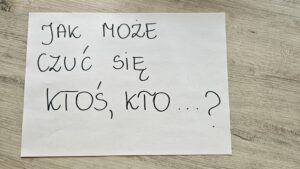 JAK MOŻE
CZUĆ SIĘ
KTOŚ, KTO...?